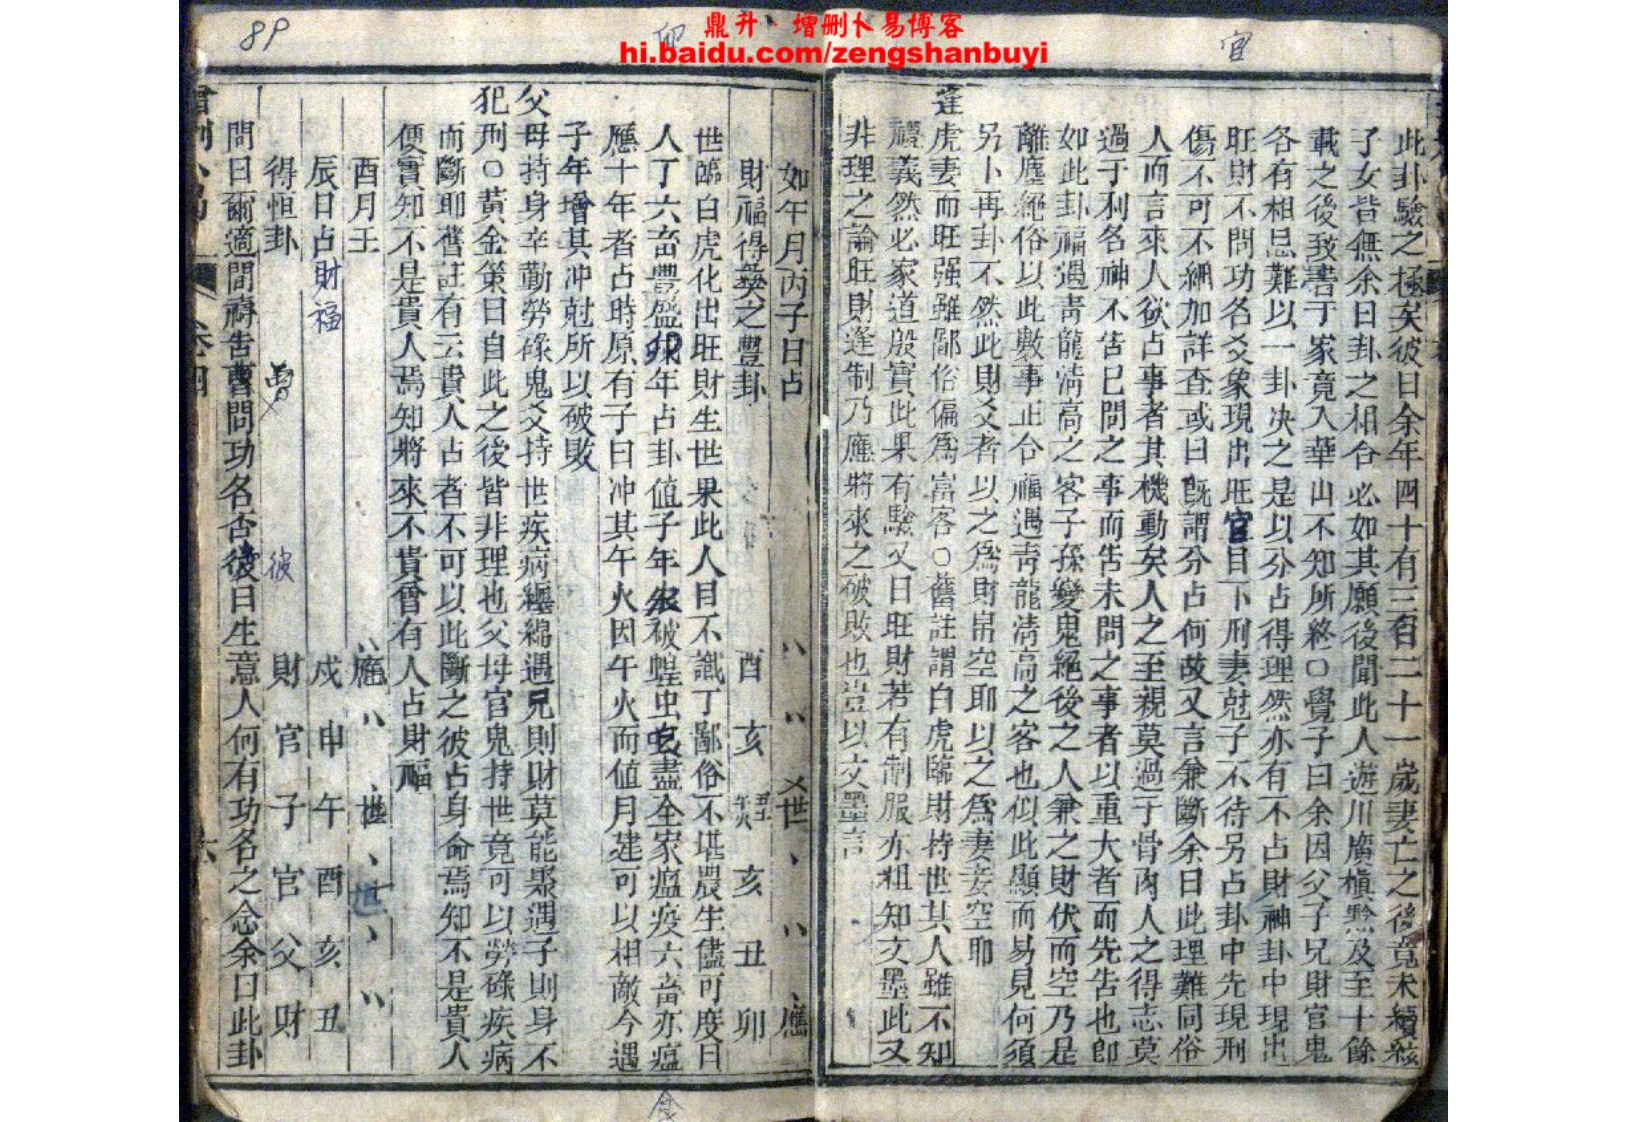 鼎升·增刪卜易博客
hi.baidu.com/zengshanbuyi
89
卯
官
此卦驗之極矣彼曰余年四十有三百二十一歲妻亡之後竟未續絃
子女皆無余曰卦之相合必如其願後聞此人遊川廣楨黔及至十餘
載之後致書于家竟入華山不知所終○覺子曰余因父子兄財官鬼
各有相忌難以一卦决之是以分占得理然亦有不占財神卦中現出
旺財不問功名爻象現出旺官目下刑妻尅子不待另占卦中先現刑
傷不可不細加詳查或曰既謂分占何故又言兼斷余曰此理難同俗
人而言來人欲占事者其機動矣人之至親莫過于骨肉人之得志莫
過于利名神不告已問之事而告未問之事者以重大者而先告也卽
如此卦福遇靑龍淸高之客子孫變鬼絕後之人兼之財伏而空乃是
離塵絕俗以此數事正合福遇靑龍淸高之客也似此顯而易見何須
另卜再卦不然此則爻者以之爲財帛空耶以之爲妻妾空耶
逢虎妻而旺强雖鄙俗偏爲富客○舊註謂白虎臨財持世其人雖不知
禮義然必家道殷實此果有驗又曰旺財若有制服亦粗知文墨此又
非理之論旺財逢制乃應將來之破敗也豈以文墨言
如午月丙子日占
財福得 之豐卦
世 應
酉 亥 亥 丑 卯
世臨白虎化出旺財生世果此人目不識丁鄙俗不堪農生儘可度日
人丁六畜豐盛卯年占卦值子年 被蝗虫 盡全家瘟疫六畜亦瘟
應十年者占時原有子曰冲其午火因午火而值月建可以相敵今遇
子年增其冲尅所以破敗
父母持身辛勤勞碌鬼爻持世疾病纒綿遇兄則財莫能聚遇子則身不
犯刑○黃金策曰自此之後皆非理也父母官鬼持世竟可以勞碌疾病
而斷耶舊註有云貴人占者不可以此斷之彼占身命焉知不是貴人
便實知不是貴人焉知將來不貴曾有人占財福
酉月壬
辰日占財福
得恒卦
應 世 世
戌 申 午 酉 亥 丑
財 官 子 官 父 財
曹
彼
問曰爾適間禱告曹問功名否彼曰生意人何有功名之念余曰此卦
卷四
六